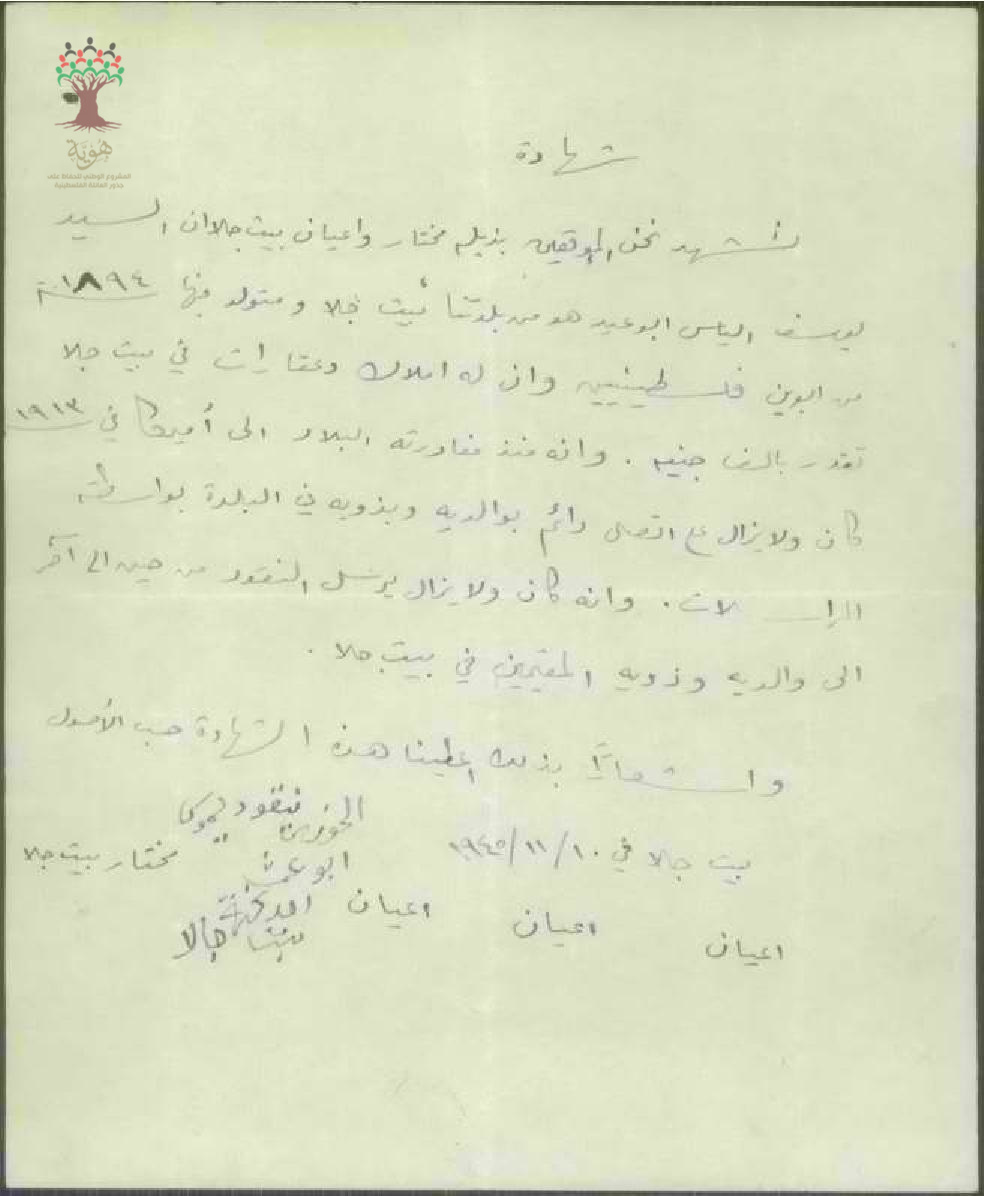 هُوِيَّة
المشروع الوطني للحفاظ على
جذور العائلة الفلسطينية
شهادة
نشهد نحن الموقعين بذيله مختار واعيان بيت جالا ان السيد
يوسف الياس ابو عيد هو من بلدتنا بيت جالا ومتولد فيها سنة ١٨٩٤
من ابوين فلسطينيين وان له املاك وعقارات في بيت جالا
تقدر بالف جنيه . وانه منذ مغادرته البلاد الى أميركا في سنة ١٩١٣
كان ولا يزال على اتصال دائم بوالديه وبذويه في البلدة بواسطة
المراسلات . وانه كان ولا يزال يرسل النقود من حين الى آخر
الى والديه وذويه المقيمين في بيت جالا .
واشعارًا بذلك اعطينا هذه الشهادة حسب الأصول
بيت جالا في ١٩٤٥/١١/١٠
الخوري
ابو
مختار بيت جالا
اعيان اعيان اعيان
بيت جالا